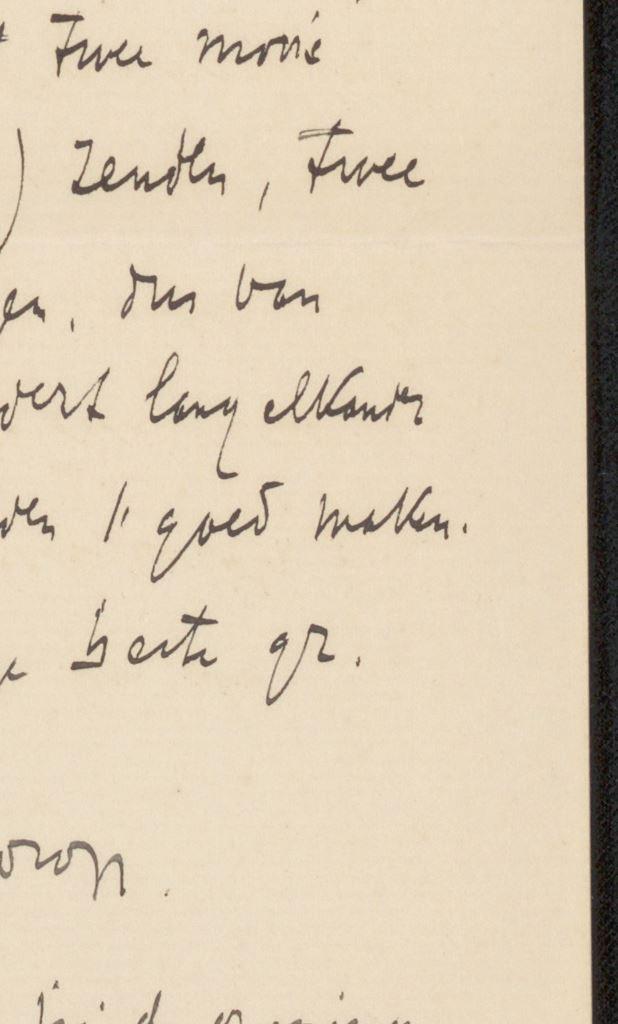 twee mooie
) zenden, twee
en. dus van
dert lang elkander
den 't goed maken.
beste gr.
orop.